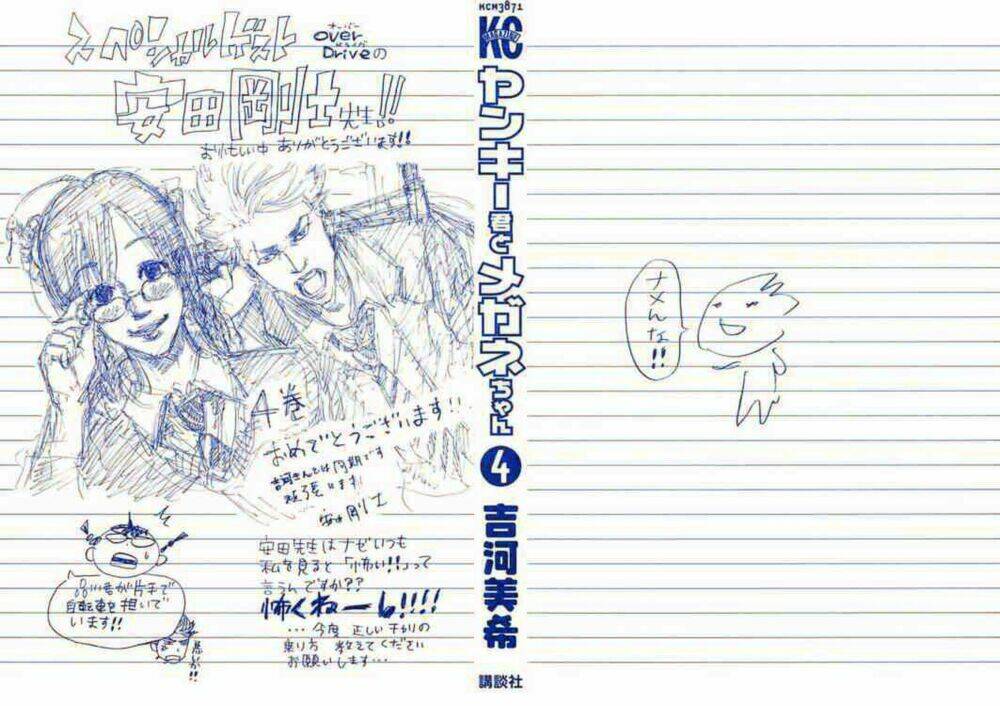 スペシャルゲスト
オーバー
over
ドライヴ
Driveの
安田剛士先生!!
おいそがしい中 ありがとうございます!!
4巻
おめでとうございます!!
吉河さんとは同期です
頑張います!
安田剛士
品川君が片手で
自転車を担いで
います!!
安田先生はナゼいつも
私を見ると「怖い!!」って
言うんですか??
怖くねーし!!!!
…今度 正しいチャリの
乗り方 教えてください
お願いします…
KCM3871
KC
MAGAZINE
ヤンキー君とメガネちゃん
4
吉河美希
講談社
ナメんな!!